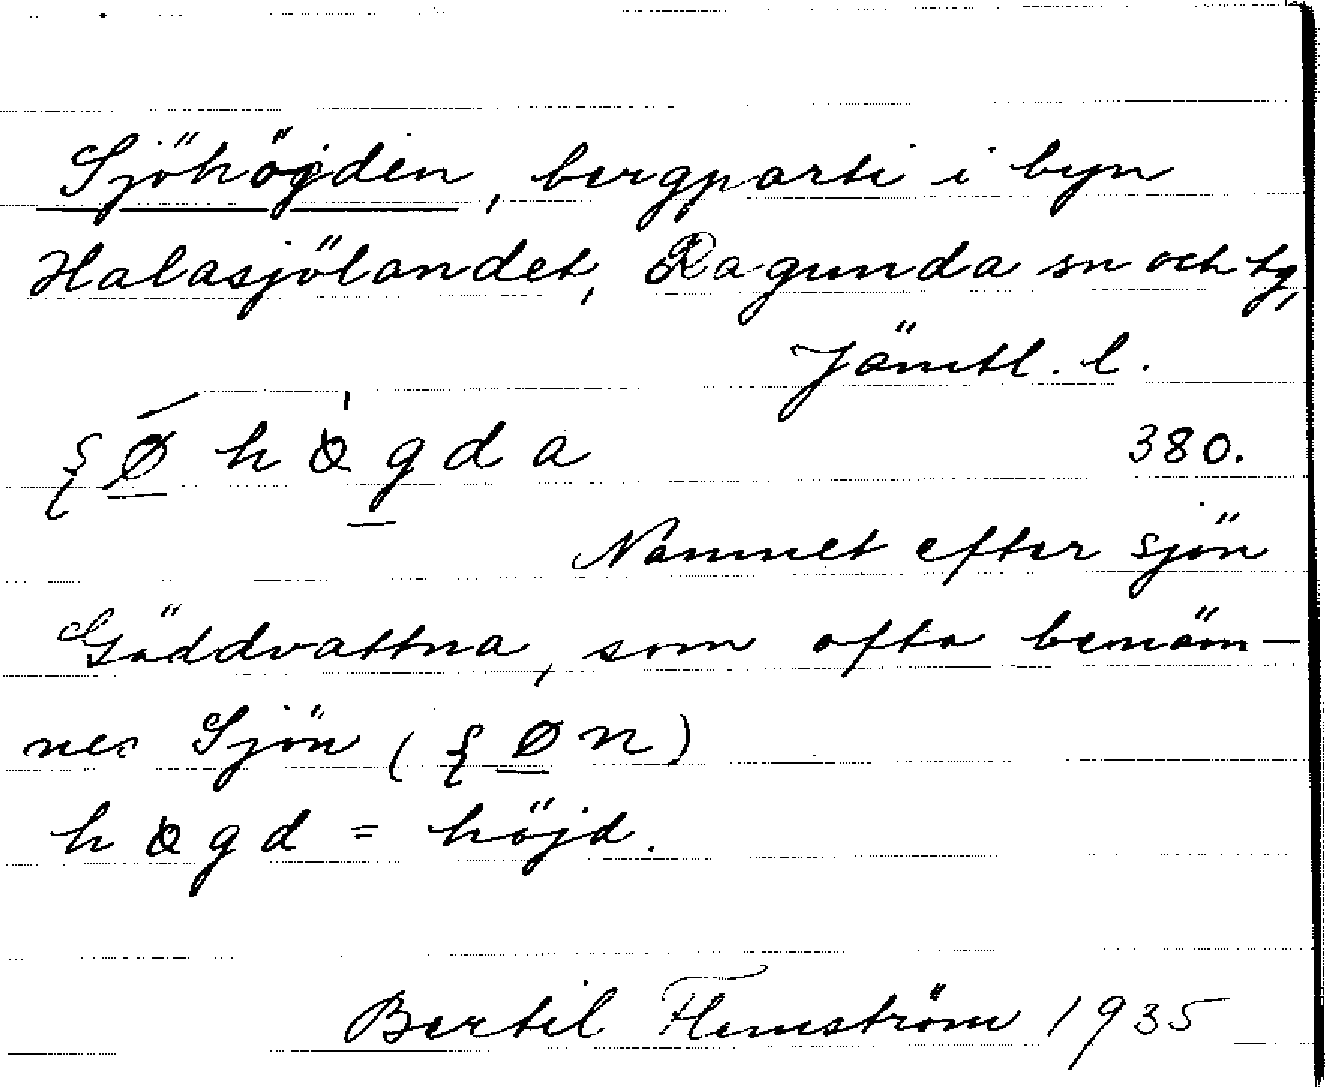 Sjöhöjden, bergparti i byn
Halasjölandet, Ragunda sn och tg,
Jämtl. l.
h g d a 380.
Namnet efter sjön
Gäddvattna, som ofta benäm-
nes Sjön ( )
= höjd.
Bertil Flemström 1935